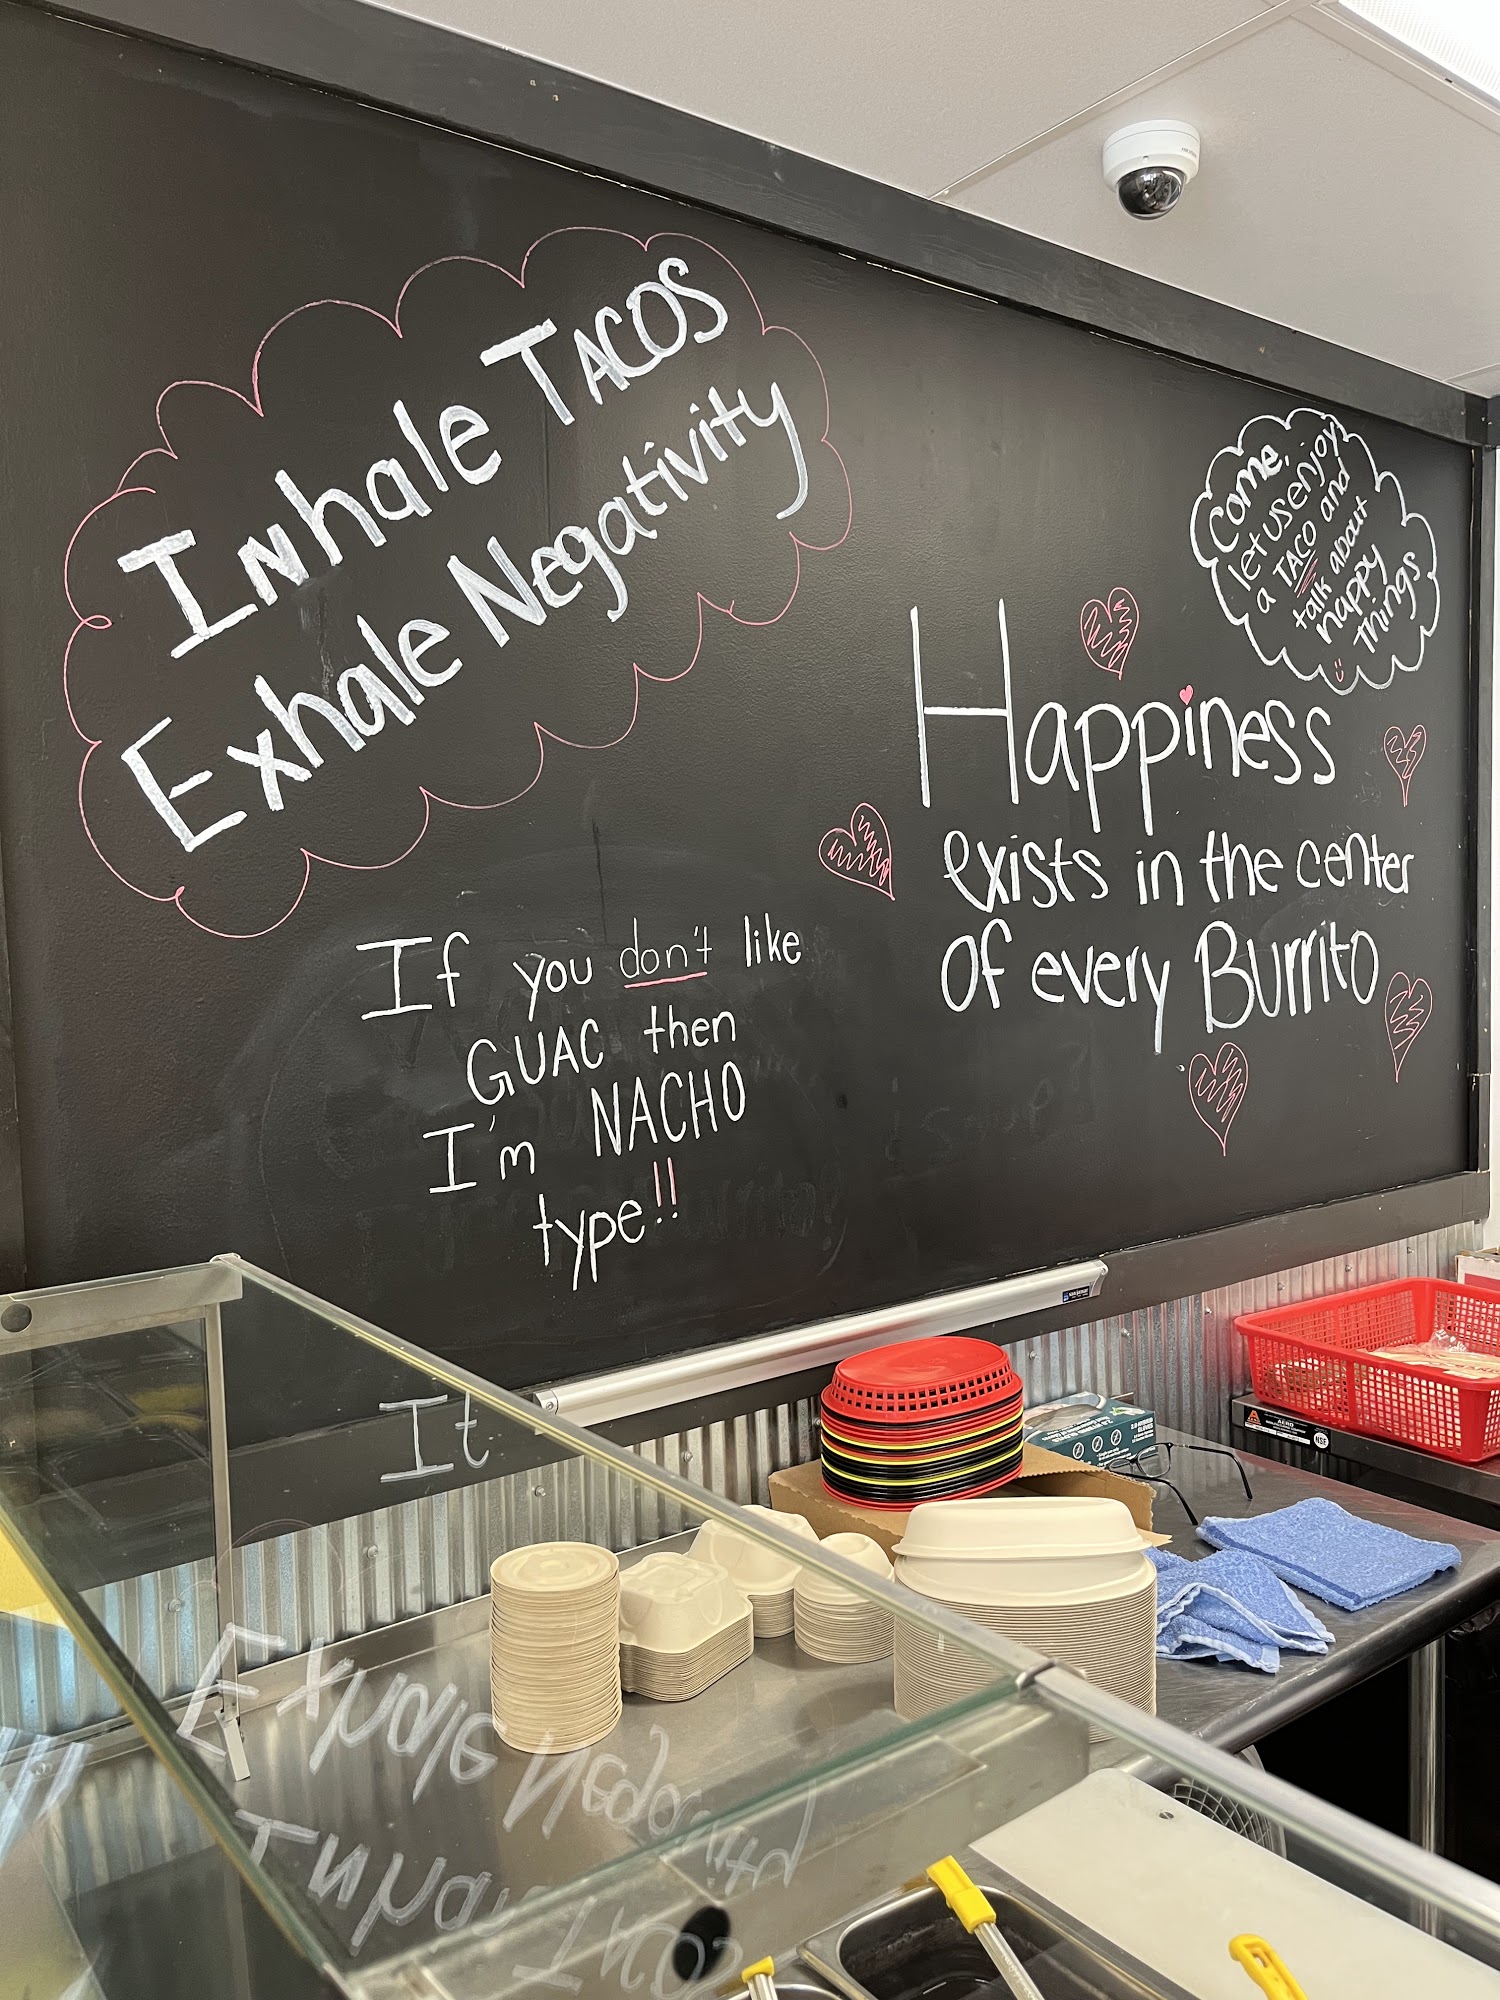 Inhale TACOS
Exhale Negativity
If you don't like
GUAC then
I'm NACHO
type!!
Come,
let us enjoy
a TACO and
talk about
happy
things
Happiness
exists in the center
of every Burrito
It
AERO
NSF